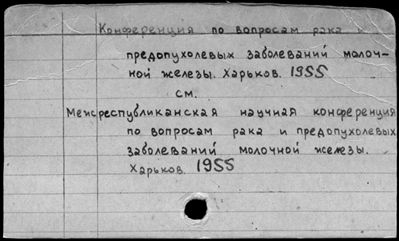 Конференция по вопросам рака и
предопухолевых заболеваний молоч-
ной железы. Харьков. 1955
см.
Межреспубликанская научная конференция
по вопросам рака и предопухолевых
заболеваний молочной железы.
Харьков. 1955